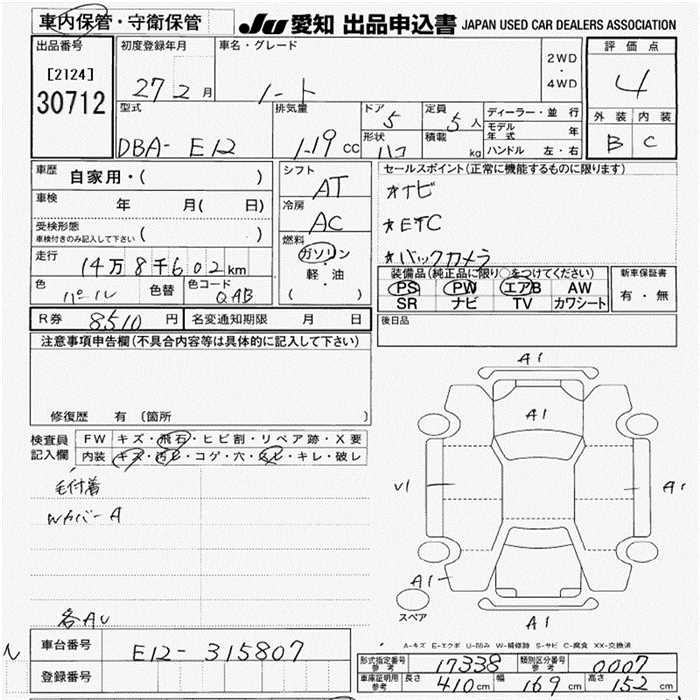 車内保管・守衛保管 JU 愛知 出品申込書 JAPAN USED CAR DEALERS ASSOCIATION
出品番号 初度登録年月 車名・グレード 評価点
[2124]
30712
27 2 月 ノート 2WD・4WD 4
型式 排気量 ドア 5 定員 5 人 ディーラー・並 行 外装 内装
モデル年式 年
DBA- E12 1-19 cc 形状 ハコ 積載 kg ハンドル 左・右 B C
車歴 自家用・( )
シフト AT
セールスポイント(正常に機能するものに限ります)
車検 年 月( 日)
冷房 AC
*ナビ
*ETC
*バックカメラ
受検形態
車検付きのみ記入して下さい ( )
燃料 ガソリン・軽・油 ( )
走行 14万8千602km
装備品(純正品に限り○をつけてください) 新車保証書
PS PW エアB AW 有・無
SR ナビ TV カワシート
色 パール 色替 色コード QAB
後日品
R券 8510 円 名変通知期限 月 日
注意事項申告欄(不具合内容等は具体的に記入して下さい)
修復歴 有 〔箇所 〕
検査員記入欄 FW キズ・飛石・ヒビ割・リペア跡・X要
内装 キズ・汚レ・コゲ・穴・スレ・キレ・破レ
毛付着
Wカバー A
各AU
A1
A1
V1
A1
A1
A1
スペア
A-キズ E-エクボ U-凹み W-補修跡 S-サビ C-腐食 XX-交換済
車台番号 E12-315807
登録番号
型式指定番号 参考 17338 類別区分番号 参考 0007
車庫証明用 参考 長さ 410cm 幅 169cm 高さ 152cm